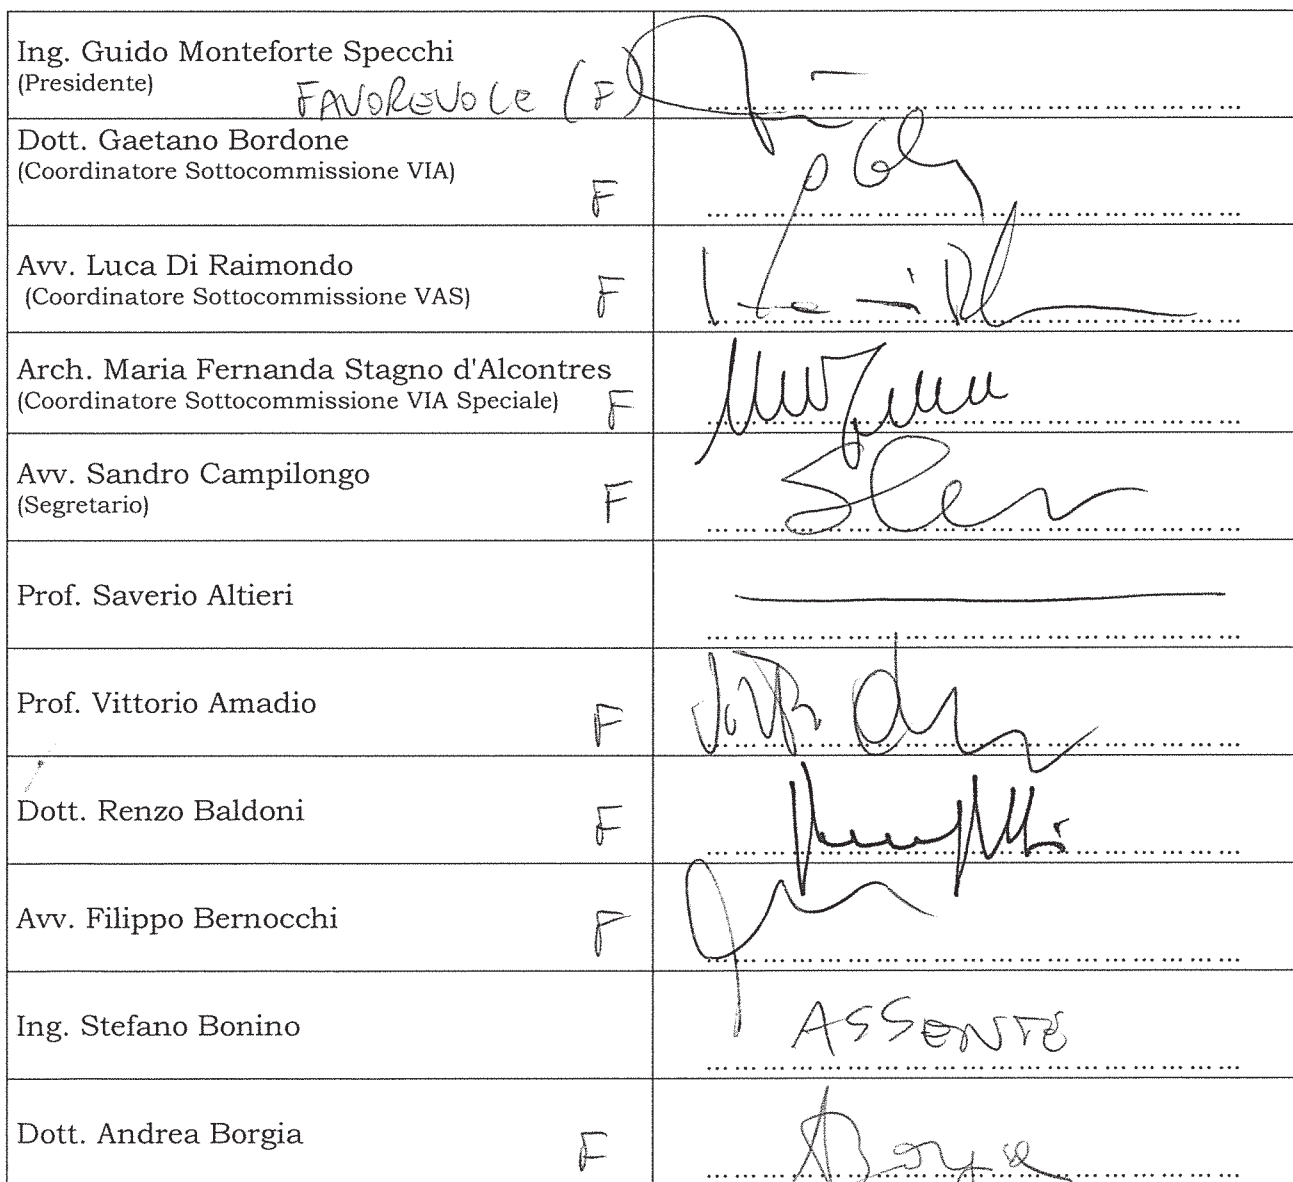 Ing. Guido Monteforte Specchi
(Presidente)
FAVOREVOLE (F)
Dott. Gaetano Bordone
(Coordinatore Sottocommissione VIA)
F
Avv. Luca Di Raimondo
(Coordinatore Sottocommissione VAS)
F
Arch. Maria Fernanda Stagno d'Alcontres
(Coordinatore Sottocommissione VIA Speciale) F
Avv. Sandro Campilongo
(Segretario) F
Prof. Saverio Altieri
Prof. Vittorio Amadio F
Dott. Renzo Baldoni F
Avv. Filippo Bernocchi F
Ing. Stefano Bonino ASSENTE
Dott. Andrea Borgia F Borgia